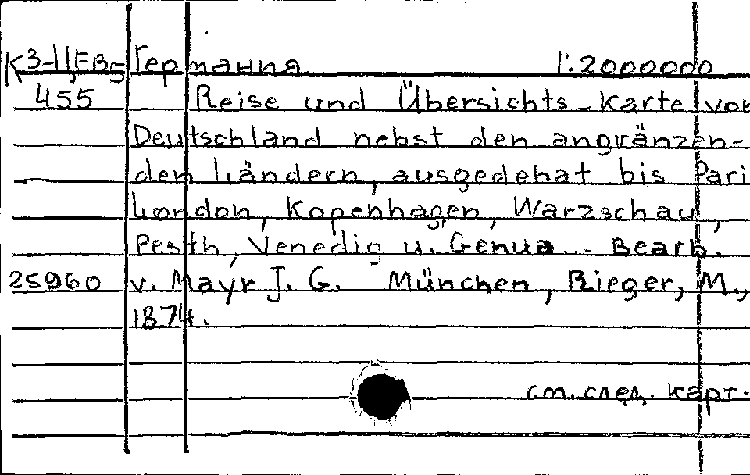 К3-11,Ев5 Германия 1:2000000
455 Reise und Übersichts-Karte von
Deutschland nebst den angränzen-
den Ländern, ausgedehnt bis Pari
London, Kopenhagen, Warzschau,
Pesth, Venedig u. Genua - Bearb.
25960 v. Mayr J. G. München, Rieger, M.,
1874.
см. след. карт.